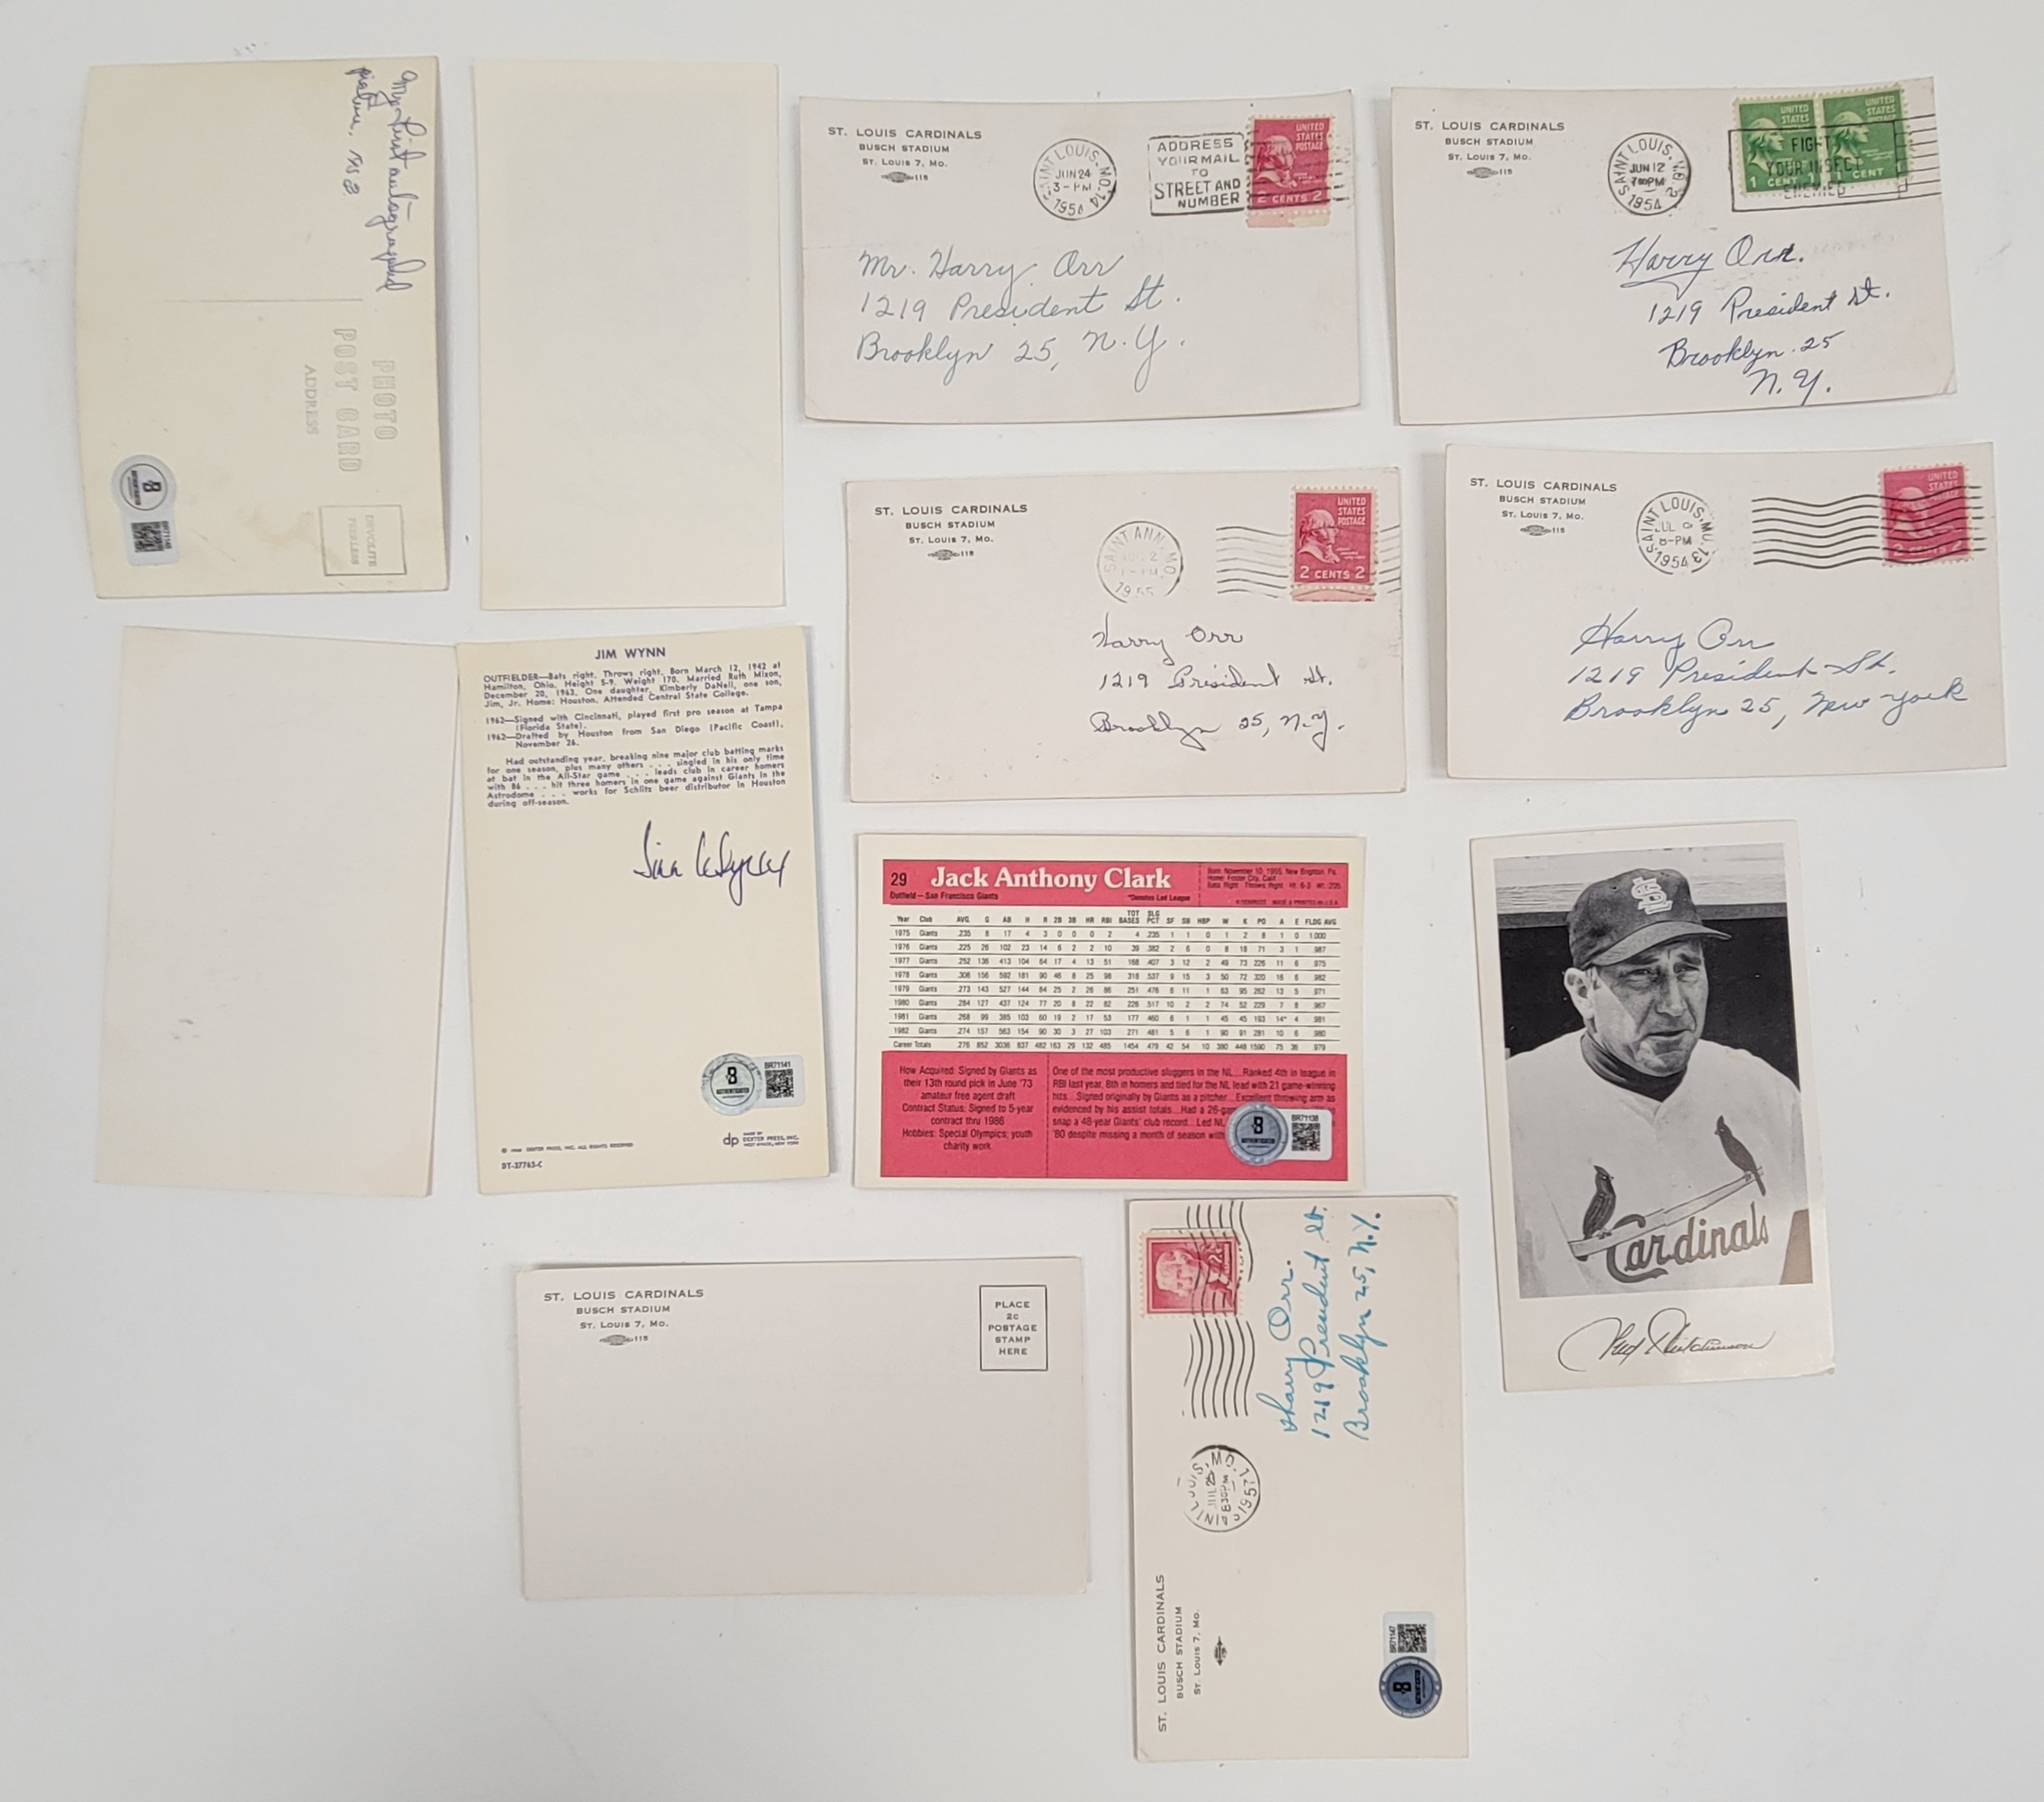 My First autographed
picture. 1952.
PHOTO
POST CARD
ADDRESS
DEVOLITE
PEERLESS
ST. LOUIS CARDINALS
BUSCH STADIUM
St. Louis 7, Mo.
115
SAINT LOUIS, MO. 14
JUN 24
3-PM
1954
ADDRESS
YOUR MAIL
TO
STREET AND
NUMBER
UNITED
STATES
POSTAGE
2 CENTS 2
Mr. Harry Orr
1219 President St.
Brooklyn 25, N.Y.
ST. LOUIS CARDINALS
BUSCH STADIUM
St. Louis 7, Mo.
115
SAINT LOUIS,
JUN 12
PM
1954
UNITED
STATES
UNITED
STATES
POSTAGE
FIGHT
YOUR INSECT
ENEMIES
1 CENT
Harry Orr.
1219 President St.
Brooklyn. 25
N.Y.
ST. LOUIS CARDINALS
BUSCH STADIUM
St. Louis 7, Mo.
115
SAINT ANN, MO.
1955
UNITED
STATES
POSTAGE
2 CENTS 2
Harry Orr
1219 President St.
Brooklyn 25, N.Y.
ST. LOUIS CARDINALS
BUSCH STADIUM
St. Louis 7, Mo.
115
SAINT LOUIS, MO. 13
JUL
8-PM
1954
UNITED
STATES
POSTAGE
2 CENTS 2
Harry Orr
1219 President St.
Brooklyn 25, New York
JIM WYNN
OUTFIELDER—Bats right. Throws right. Born March 12, 1942 at
Hamilton, Ohio. Height 5-9. Weight 170. Married Ruth Mixon,
December 20, 1963. One daughter, Kimberly DaNell, one son,
Jim, Jr. Home: Houston. Attended Central State College.
1962—Signed with Cincinnati, played first pro season at Tampa
(Florida State).
1962—Drafted by Houston from San Diego (Pacific Coast),
November 26.
Had outstanding year, breaking nine major club batting marks
for one season, plus many others . . . singled in his only time
at bat in the All-Star game . . . leads club in career homers
with 86 . . . hit three homers in one game against Giants in the
Astrodome . . . works for Schlitz beer distributor in Houston
during off-season.
Jim Wynn
BR71141
AUTHENTICATED
DEXTER PRESS, INC. ALL RIGHTS RESERVED
DT-37763-C
dp
MADE BY
DEXTER PRESS, INC.
WEST NYACK, NEW YORK
29 Jack Anthony Clark
Outfield—San Francisco Giants
*Denotes Led League
Born: November 10, 1955, New Brighton, Pa.
Home: Foster City, Calif.
Bats: Right Throws: Right Ht: 6-3 Wt: 205
Year Club AVG. G AB H R 2B 3B HR RBI TOT BASES SLG PCT SF SB HBP W K PO A E FLDG AVG
1975 Giants .235 8 17 4 3 0 0 0 2 4 .235 1 1 0 1 2 8 1 0 1.000
1976 Giants .225 26 102 23 14 6 2 2 10 39 .382 2 6 0 8 18 71 3 1 .987
1977 Giants .252 136 413 104 64 17 4 13 51 168 .407 3 12 2 49 73 226 11 6 .975
1978 Giants .306 156 592 181 90 46 8 25 98 318 .537 9 15 3 50 72 320 16 6 .982
1979 Giants .273 143 527 144 84 25 2 26 86 251 .476 6 11 1 63 95 262 13 5 .971
1980 Giants .284 127 437 124 77 20 8 22 82 226 .517 10 2 2 74 52 229 7 8 .967
1981 Giants .268 99 385 103 60 19 2 17 53 177 .460 6 1 1 45 45 193 14* 4 .981
1982 Giants .274 157 563 154 90 30 3 27 103 271 .481 5 6 1 90 91 281 10 6 .980
Career Totals .276 852 3036 837 482 163 29 132 485 1454 .479 42 54 10 380 448 1590 75 36 .979
How Acquired: Signed by Giants as
their 13th round pick in June '73
amateur free agent draft
Contract Status: Signed to 5-year
contract thru 1986
Hobbies: Special Olympics; youth
charity work
One of the most productive sluggers in the NL...Ranked 4th in league in
RBI last year, 8th in homers and tied for the NL lead with 21 game-winning
hits...Signed originally by Giants as a pitcher...Excellent throwing arm as
evidenced by his assist totals...Had a 26-ga
snap a 48-year Giants' club record...Led NL
'80 despite missing a month of season with
BR71138
AUTHENTICATED
Cardinals
Fred Hutchinson
ST. LOUIS CARDINALS
BUSCH STADIUM
St. Louis 7, Mo.
115
PLACE
2c
POSTAGE
STAMP
HERE
ST. LOUIS CARDINALS
BUSCH STADIUM
St. Louis 7, Mo.
SAINT LOUIS, MO.
JUL 25
830PM
1957
2¢
Harry Orr.
1219 President St.
Brooklyn 25, N.Y.
BR71147